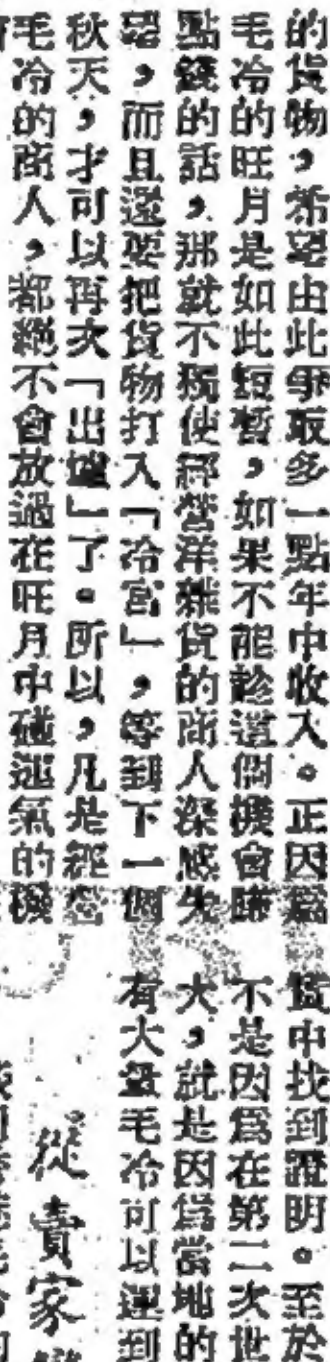 的貨物，希望由此爭取多一點年中收入。正因爲
毛冷的旺月是如此短暫，如果不能趁這個機會賺
點錢的話，那就不獨使經營洋雜貨的商人深感失
望，而且還要把貨物打入「冷宮」，等到下一個
秋天，才可以再次「出爐」了。所以，凡是經營
毛冷的商人，都絕不會放過在旺月中碰運氣的機
中找到證明。至於
不是因爲在第二次世
大，就是因爲當地的
有大量毛冷可以運到
從賣家